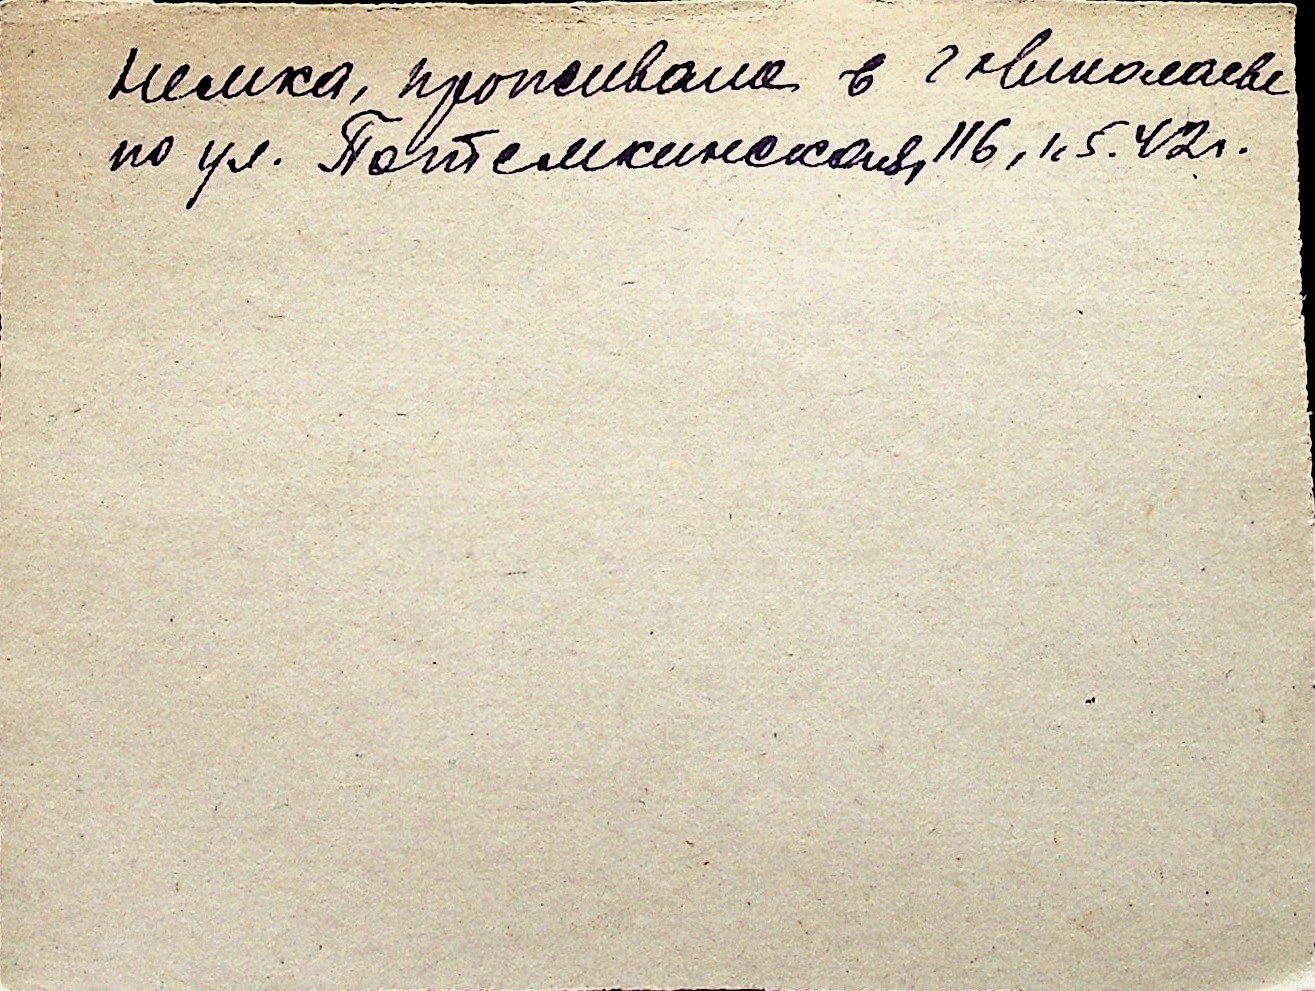 немка, проживала в г Николаеве
по ул. Потемкинская, 116, 1.5.42г.